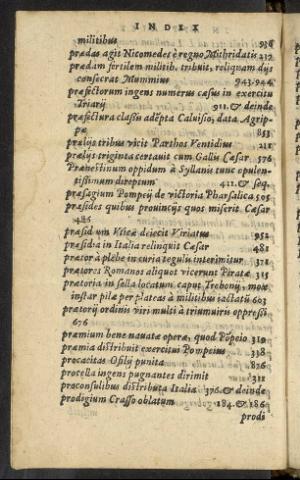 INDEX
militibus 936
prædas agit Nicomedes è regno Mithridatis 217
prædam fertilem militib. tribuit, reliquam dijs
consecrat Mummius 943.944
præfectorum ingens numerus cæsus in exercitu
Triarij 911. & deinde
præfectura classiū adēpta Caluisio, data Agrip-
pæ 853
prælijs tribus vicit Parthos Ventidius 211
prælijs triginta certauit cum Gallis Cæsar 576
Prænestinum oppidum à Syllanis tunc opulen-
tissimum direptum 411. & seq.
præsagium Pompeij de victoria Pharsalica 505
præsides quibus prouincijs quos miserit Cæsar
486
præsidiū Vticæ deiecit Viriatus 952
præsidia in Italia relinquit Cæsar 481
prætor à plebe in curia tegulis interimitur 371
prætores Romanos aliquot vicerunt Piratæ 315
prætoria in sella locatum caput Trebonij, mox
instar pilæ per plateas à militibus iactatū 603
prætorij ordinis viri multi à triumuiris oppressi
676
præmium bene nauatæ operæ, quod Pōpeio 319
præmia distribuit exercitui Pompeius 338
procacitas Ofilij punita 876
procella ingens pugnantes dirimit 311
proconsulibus distributa Italia 376. & deinde
prodigium Crasso oblatum 184. & 186
prodi